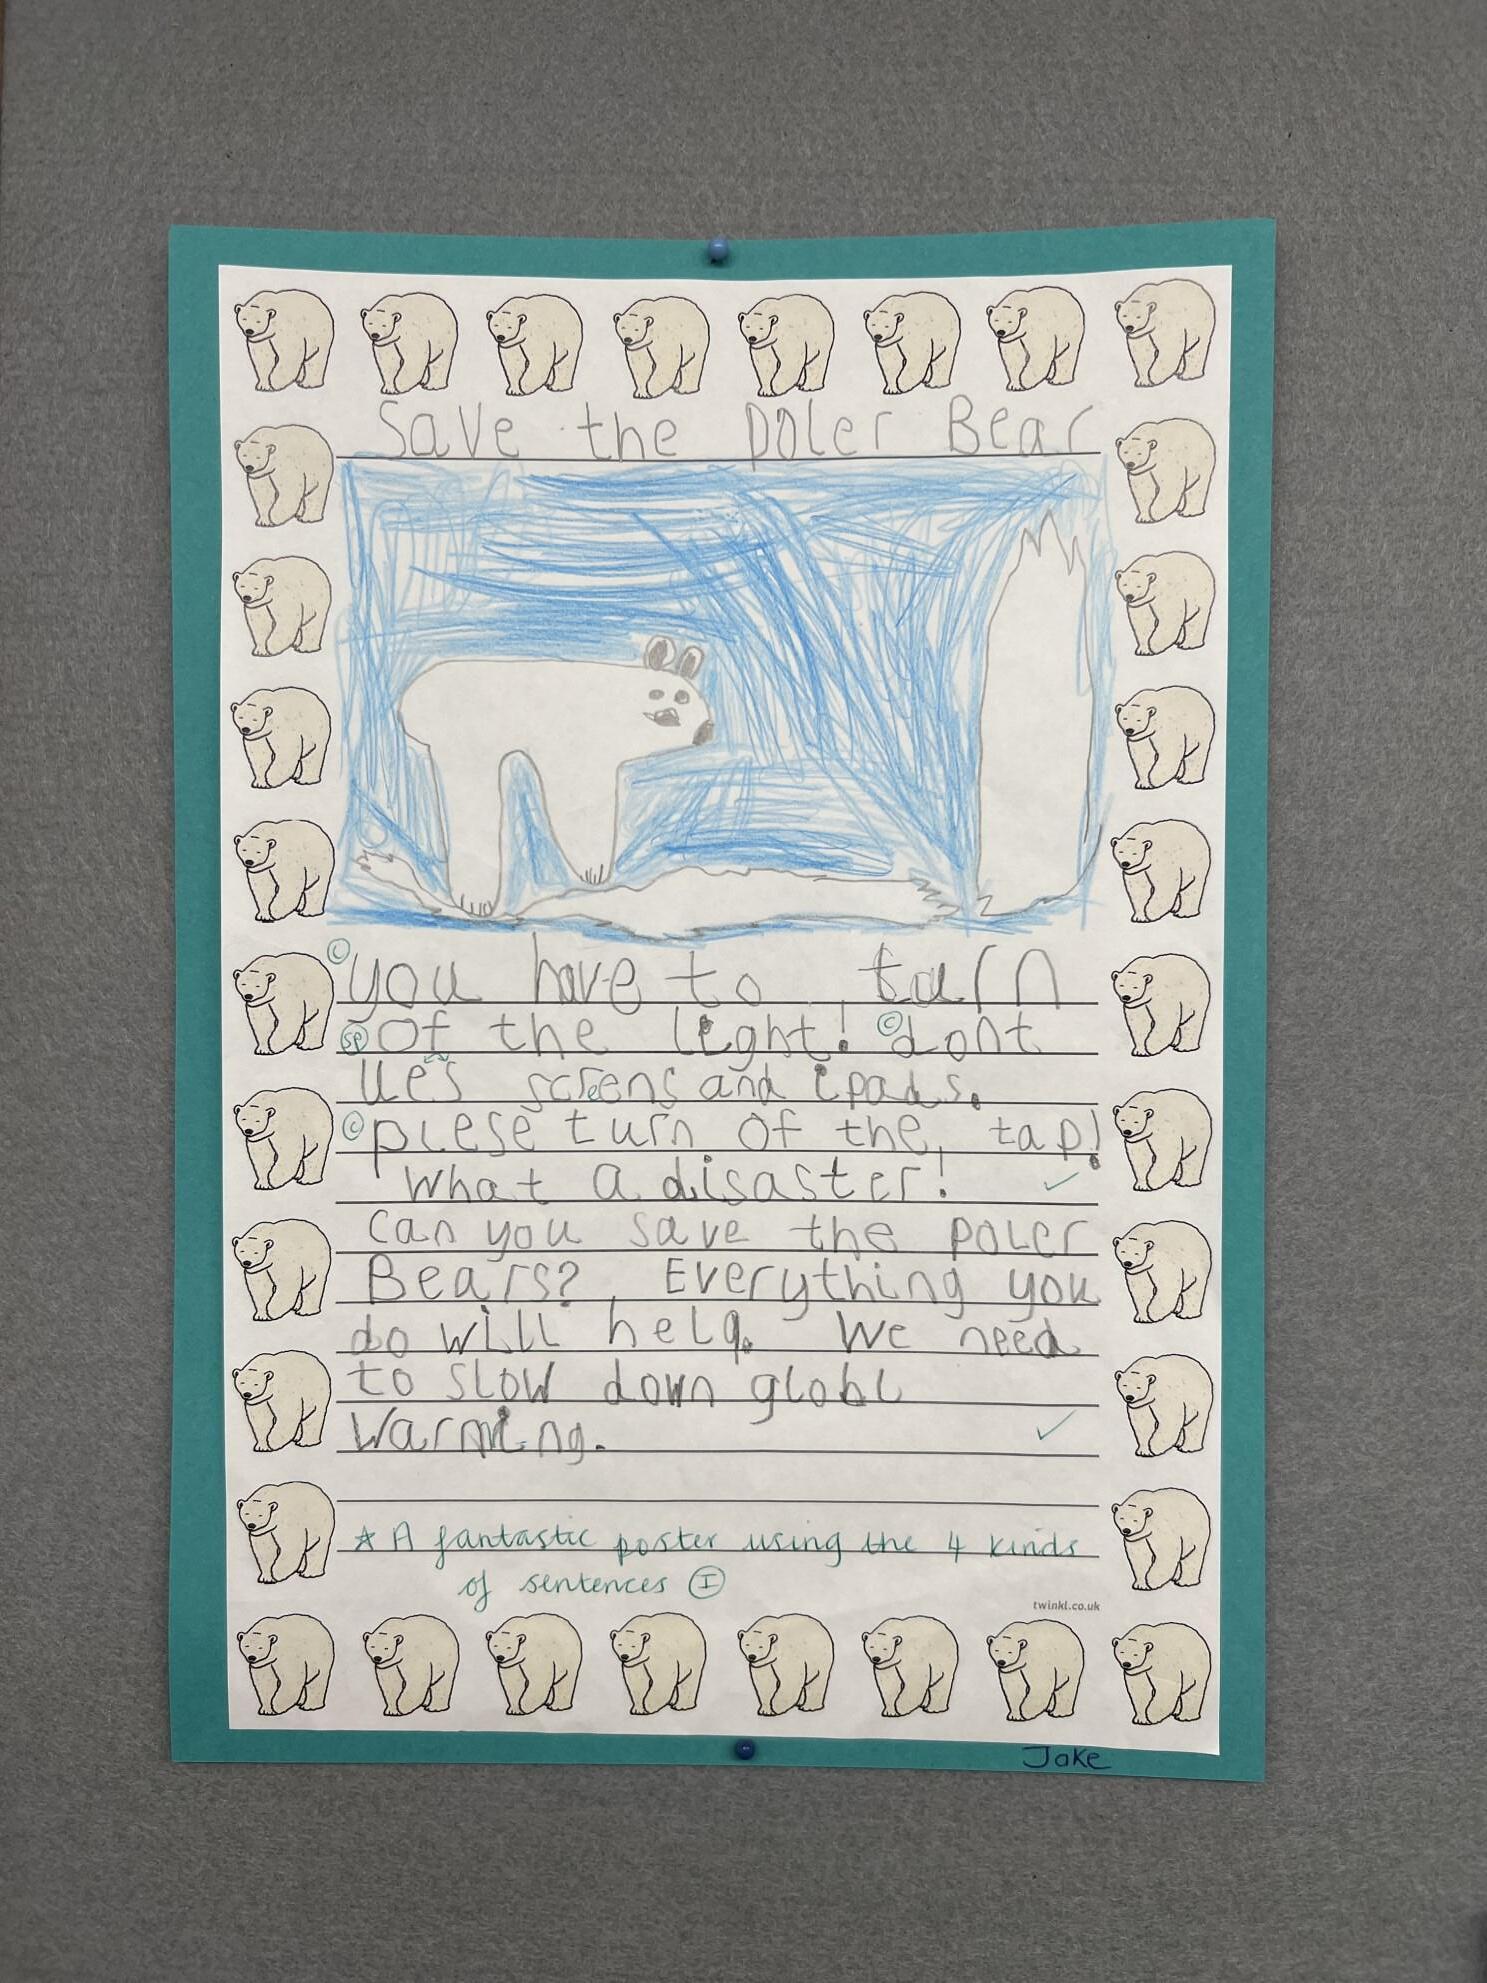 Save the poler Bear
© you have to turn
sp of the light! © dont
ues screens and ipads.
© plese turn of the tap!
What a disaster!
can you save the poler
Bears? Everything you
do will help. We need
to slow down globl
warming.
☆ A fantastic poster using the 4 kinds
of sentences Ⓘ
twinkl.co.uk
Jake